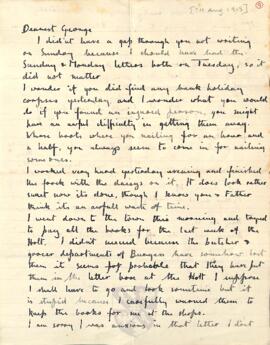 [?11 Aug 1913]
Dearest George
I didn't have a gap through you not writing
on Sunday because I should have had the
Sunday & Monday letters both on Tuesday, so it
did not matter
I wonder if you did find any bank holiday
corpses yesterday and I wonder what you would
do if you found an injured person, you might
have an awful difficulty in getting them away.
Whose boots were you nailing for an hour and
a half, you always seem to come in for nailing
some ones.
I worked very hard yesterday evening and finished
the frock with the daisys on it. It does look rather
sweet now its done, though I know you & Father
think its an awfull waste of time.
I went down to the town this morning and tryed
to pay all the books for the last week of the
Holt. I didn't succeed because the butcher &
grocer departments of have somehow lost
them it seems probable that they have put
them in the letter box at the Holt I suppose
I shall have to go and look sometime but it
is stupid because I carefully warned them to
keep the books for me at the shops.
I am sorry I was in that letter I dont